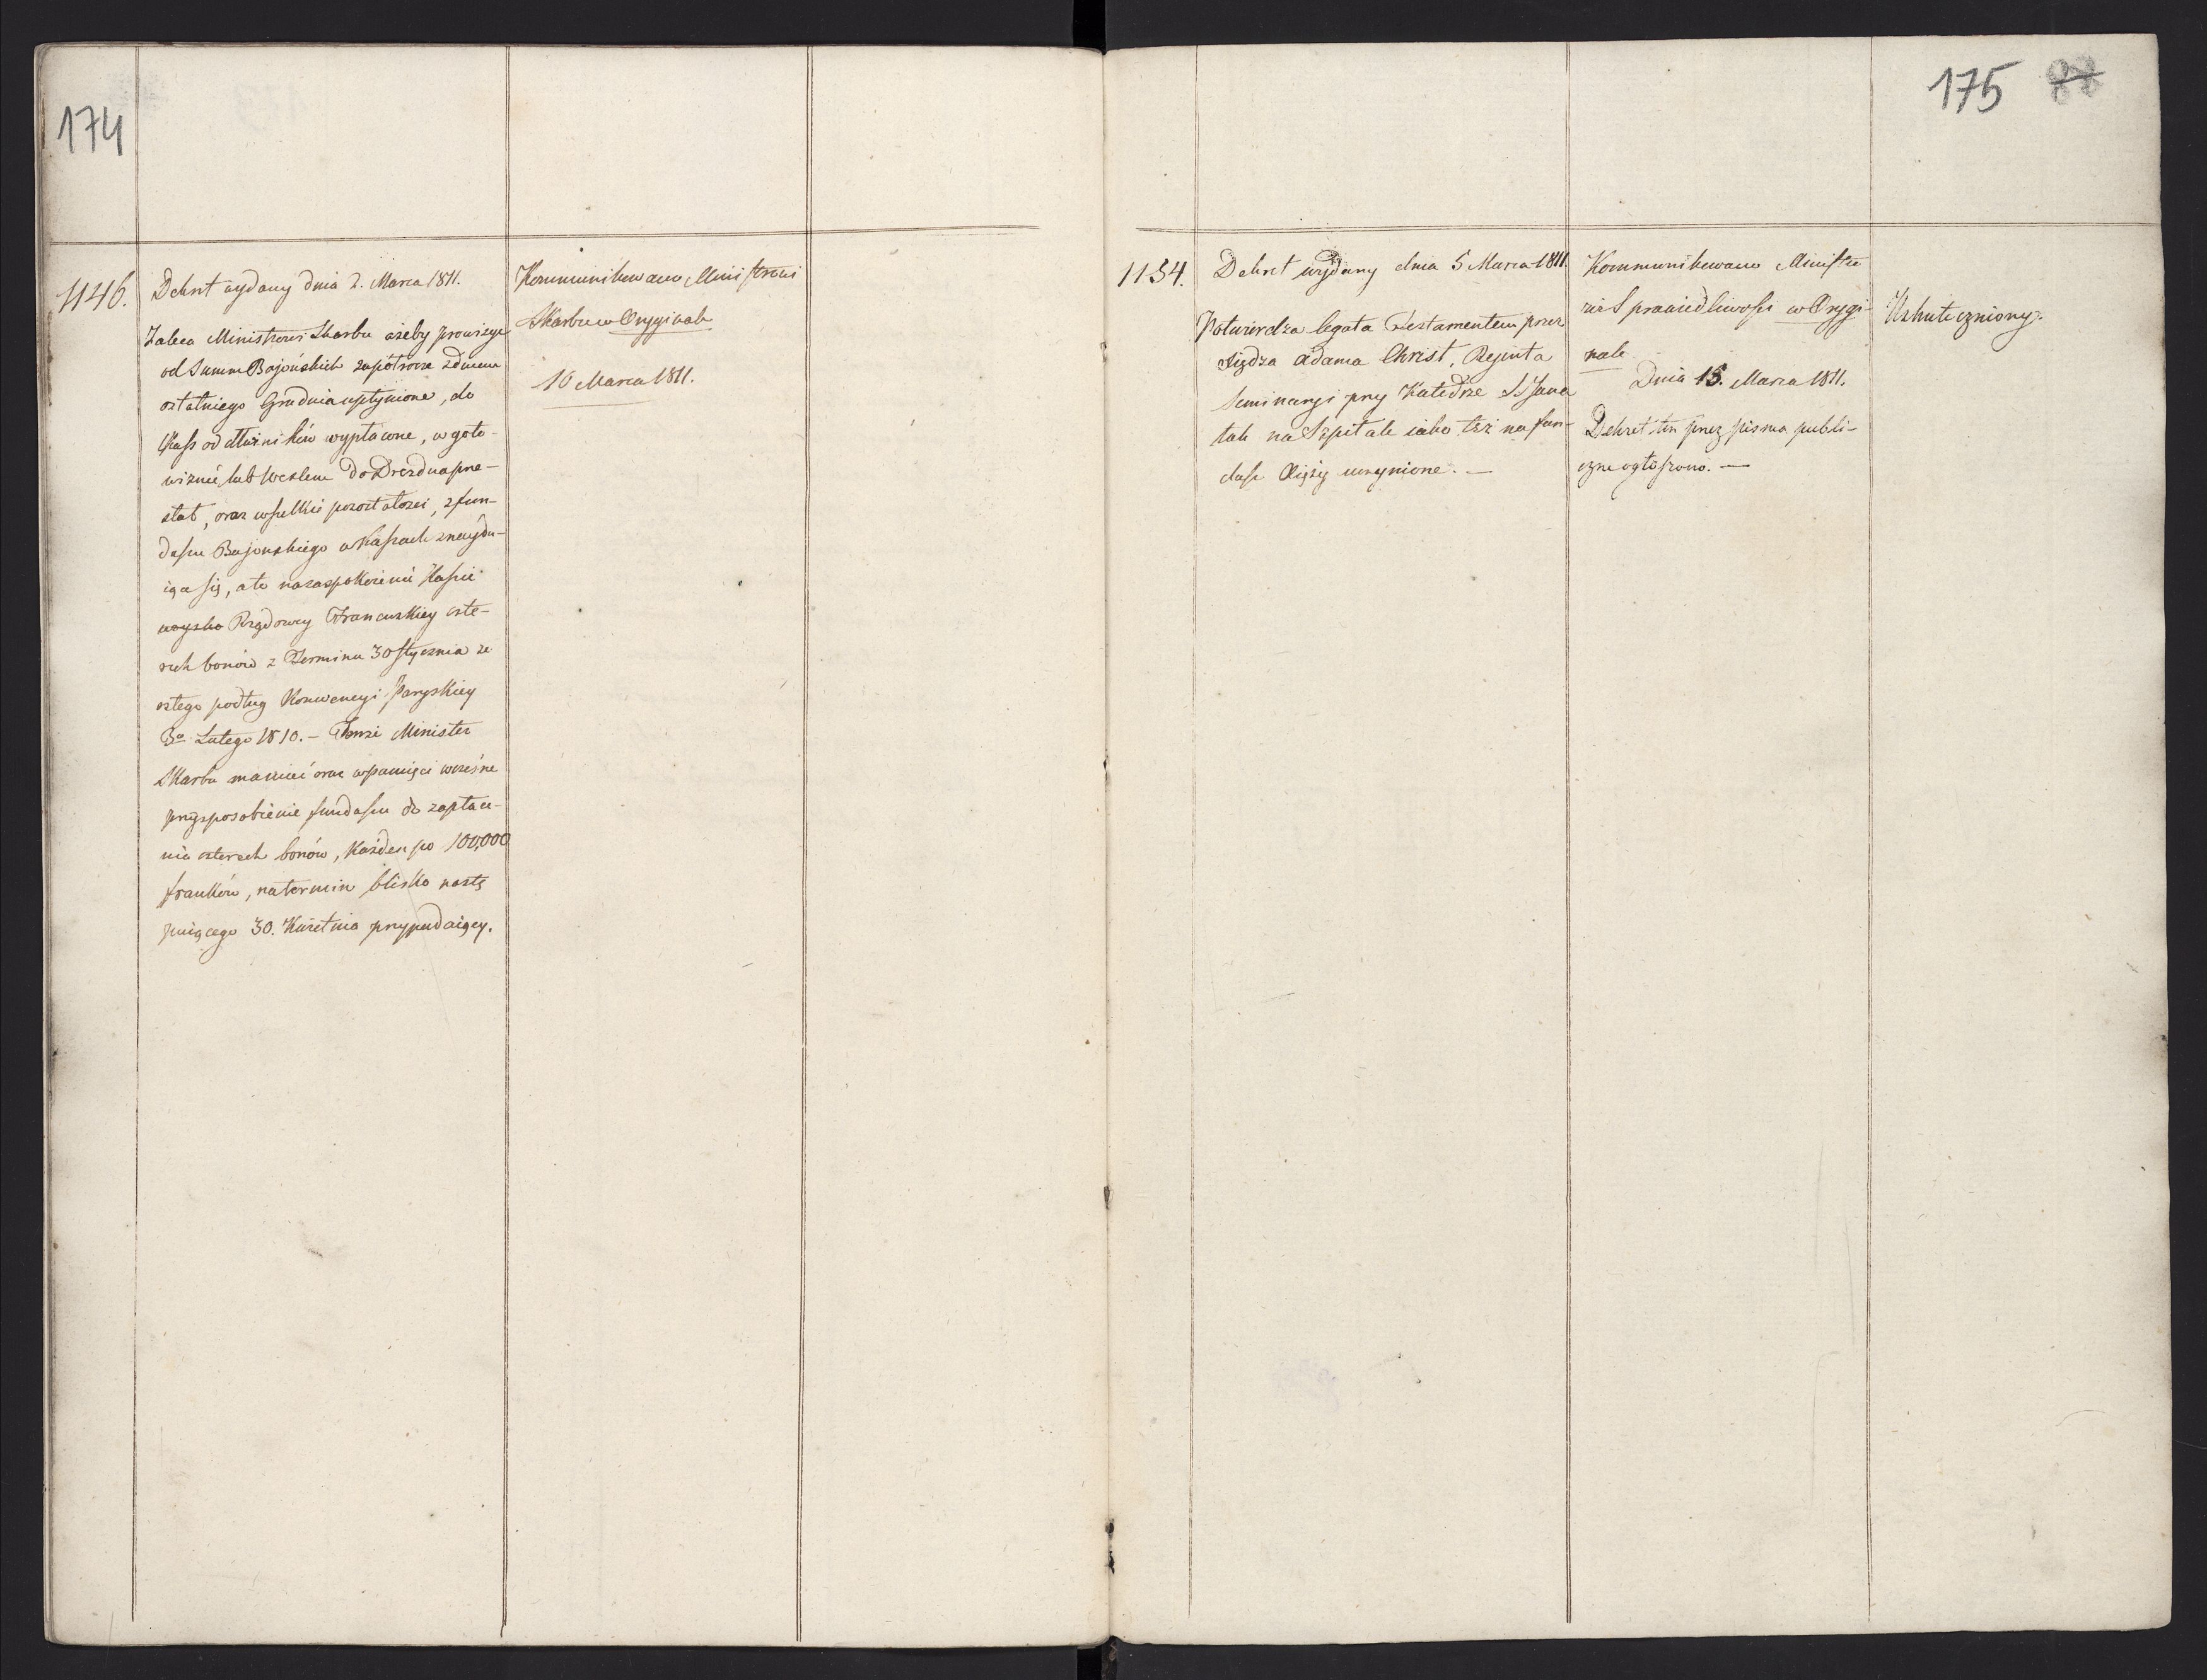 174
1146.
Dekret wydany dnia 2. Marca 1811.
Zaleca Ministrowi Skarbu ażeby prowizye
od Summ Bajońskich zapółrocze zdniem
ostatniego Grudnia upłynione, do
Kass od dłużników wypłacone, w goto-
wiznie, lub wexlem do Drezdna prze-
słał, oraz wszelkie pozostałości, z fun-
duszu Bajonskiego w Kassach znaydu-
iące się, a to na zaspokoienie Kassie
Rządowey Francuskiey czte-
rech bonów z Terminu 30 stycznia ze-
szłego podług Konwencyi Paryskiey
3o Lutego 1810. – Tenże Minister
Skarbu ma mieć oraz w pamięci wcześne
przysposobienie funduszu do zapłace-
nia czterech bonów, każden po 100,000
franków, na termin blisko nastę
puiącego 30. Kwietnia przypadaiący.
Kommunikowano Ministrowi
Skarbu w Oryginale
16 Marca 1811.
175 88
1154.
Dekret wydany dnia 5 Marca 1811.
Potwierdza legata Testamentem przez
Xiędza Adama Christ, Rejenta
Seminaryi przy Katedrze S Jana
tak na Szpitale iako też na fun-
dusz Xięży uczynione. —
Kommunikowano Ministro
wi Sprawiedliwości w Orygi-
nale
Dnia 15. Marca 1811.
Dekret ten przez pisma publi-
czne ogłoszono. —
Uskuteczniony.